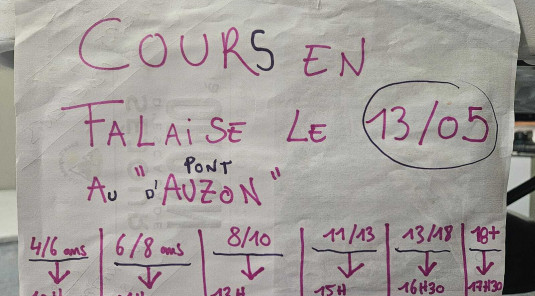 COURS EN
FALAISE LE 13/05
AU "PONT
D'AUZON"
4/6 ans 6/8 ans 8/10 11/13 13/18 18+
13H 15H 16H30 17H30